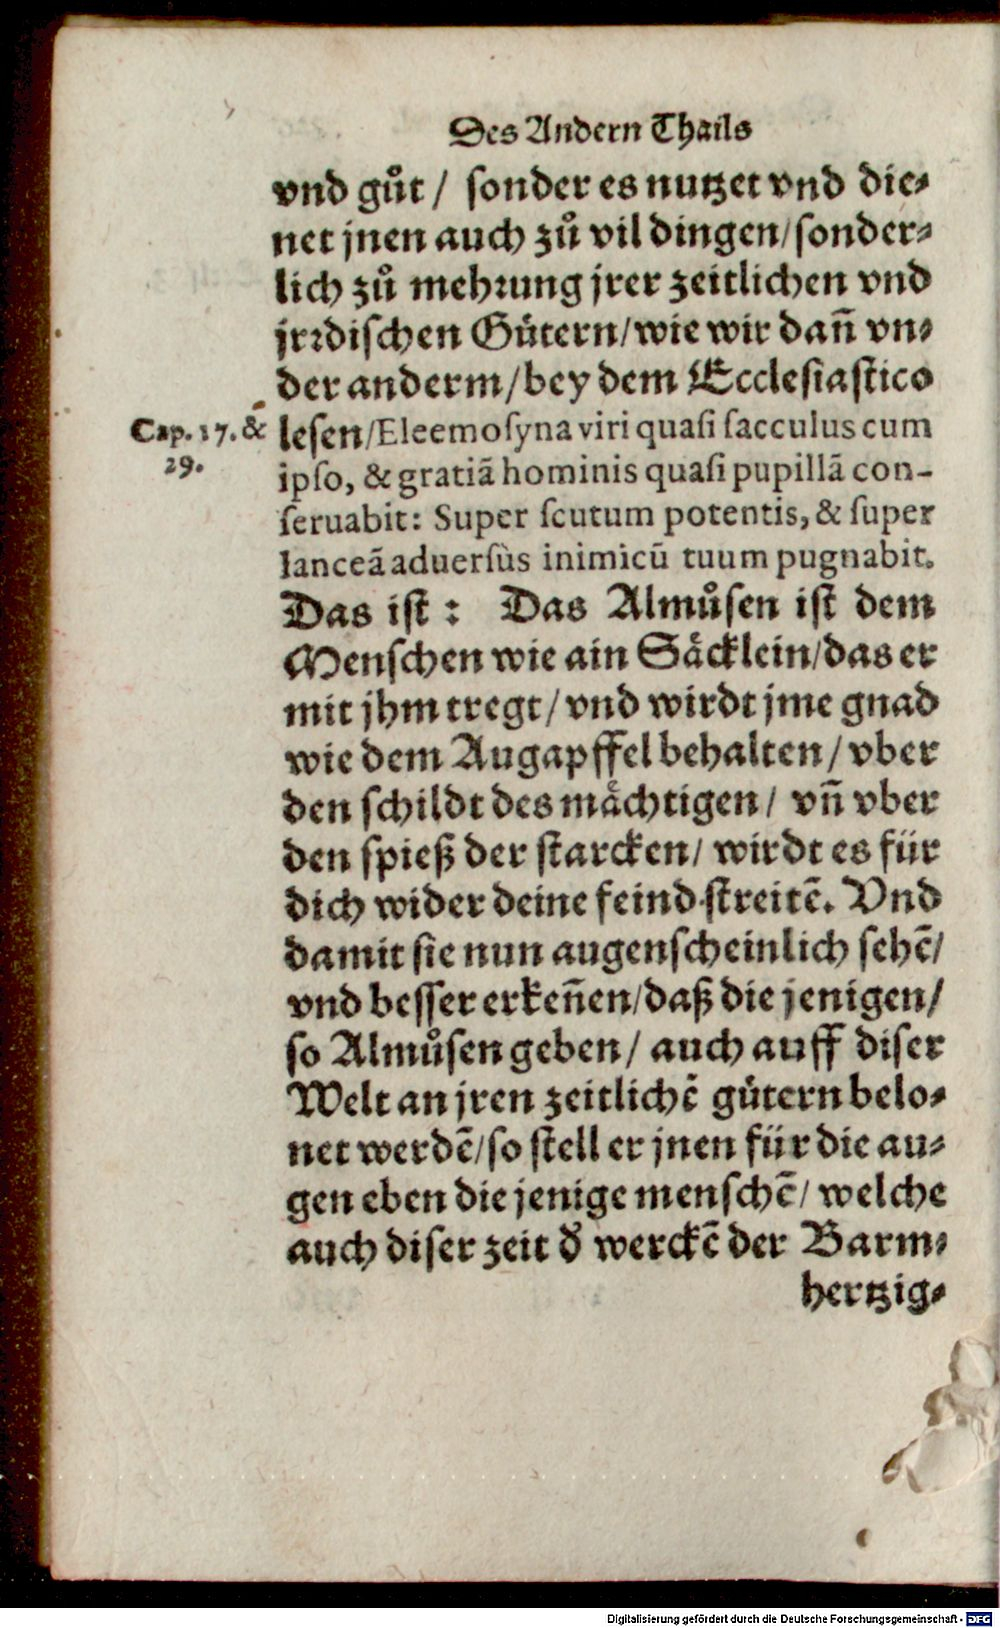 Des Andern Thails
vnd gůt / sonder es nutzet vnd die-
net jnen auch zů vil dingen/sonder-
lich zů mehrung jrer zeitlichen vnd
jrrdischen Gütern/wie wir dañ vn-
der anderm/bey dem Ecclesiastico
Cap. 17. &
29.
lesen/Eleemosyna viri quasi sacculus cum
ipso, & gratiã hominis quasi pupillã con-
seruabit: Super scutum potentis, & super
lanceã aduersùs inimicũ tuum pugnabit.
Das ist: Das Almůsen ist dem
Menschen wie ain Säcklein/das er
mit jhm tregt/vnd wirdt jme gnad
wie dem Augapffel behalten/vber
den schildt des mächtigen/ vñ vber
den spieß der starcken/ wirdt es für
dich wider deine feind streitẽ. Vnd
damit sie nun augenscheinlich sehẽ/
vnd besser erkeñen/daß die jenigen/
so Almůsen geben/ auch auff diser
Welt an jren zeitlichẽ gütern belo-
net werdẽ/so stell er jnen für die au-
gen eben die jenige menschẽ/ welche
auch diser zeit ď werckẽ der Barm-
hertzig-
Digitalisierung gefördert durch die Deutsche Forschungsgemeinschaft - DFG